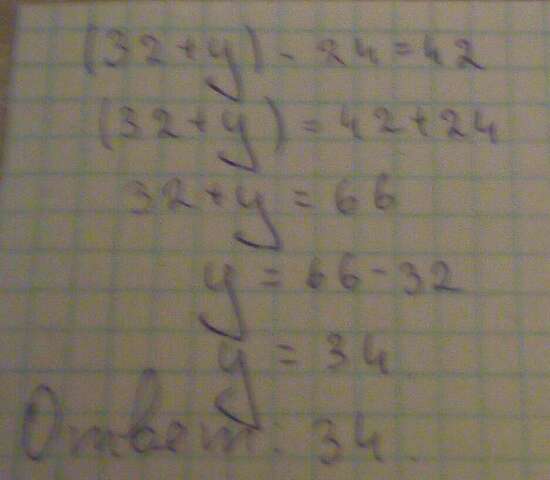 (32+y) - 24 = 42
(32+y) = 42+24
32+y = 66
y = 66-32
y = 34
Ответ: 34.